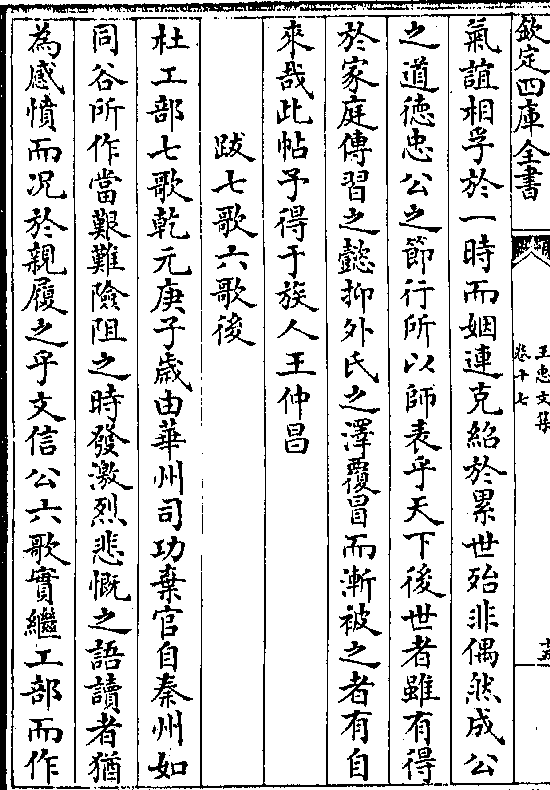 欽定四庫全書
王忠文集
卷十七
十五
氣誼相孚於一時而姻連克紹於累世殆非偶然成公
之道德忠公之節行所以師表乎天下後世者雖有得
於家庭傳習之懿抑外氏之澤覆冒而漸被之者有自
來哉此帖予得于族人王仲昌
跋七歌六歌後
杜工部七歌乾元庚子歲由華州司功棄官自秦州如
同谷所作當艱難險阻之時發激烈悲慨之語讀者猶
為感憤而况於親履之乎文信公六歌實繼工部而作